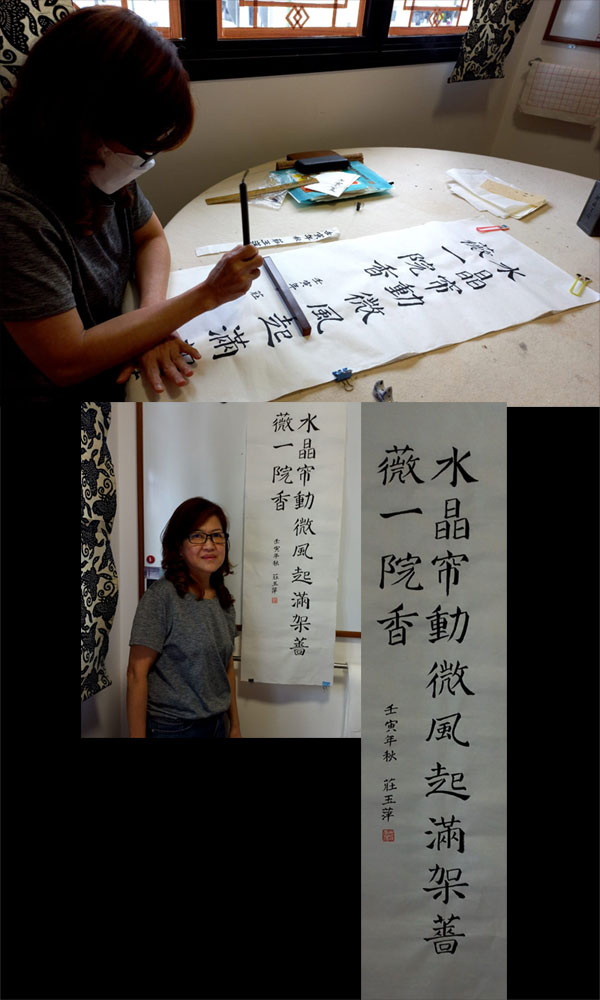 水晶帘動微風起滿
薇一院香
壬寅年
莊
水晶帘動微風起滿架薔
薇一院香
壬寅年秋 莊玉萍
水晶帘動微風起滿架薔
薇一院香
壬寅年秋 莊玉萍